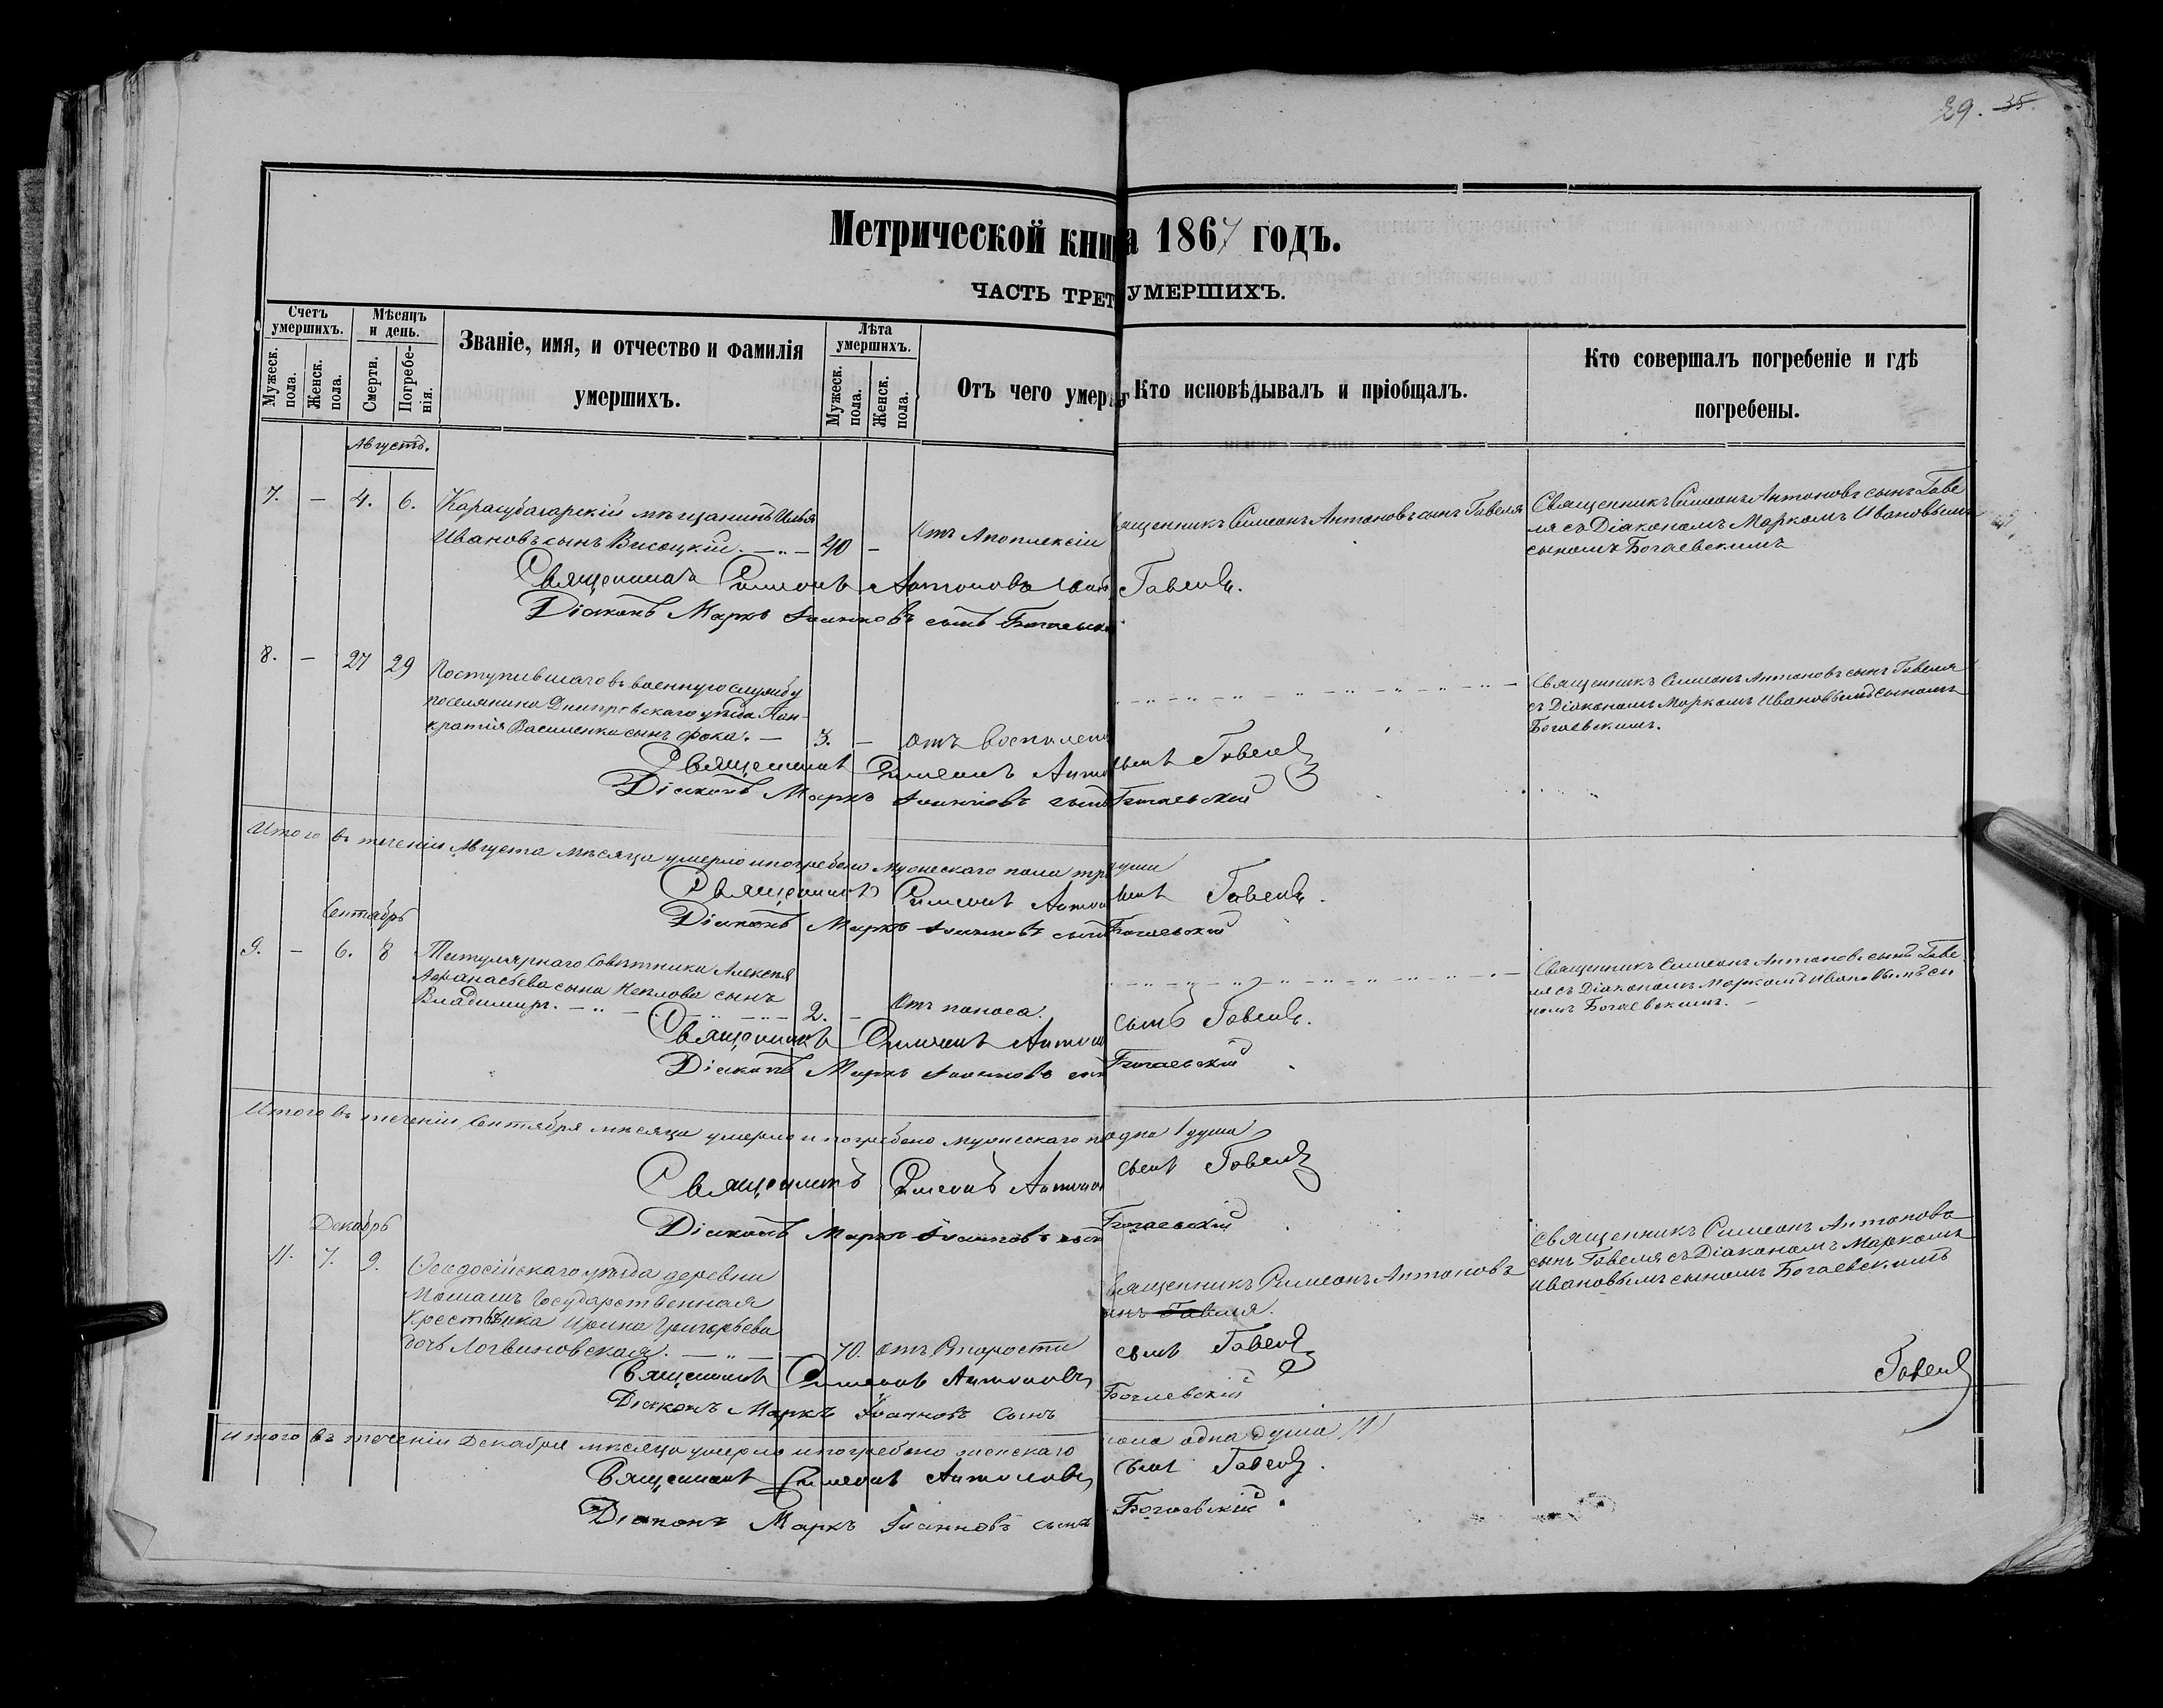 39. 35.
Метрической книга 1867 годъ.
ЧАСТЬ ТРЕТ УМЕРШИХЪ.
Счетъ умершихъ.
Мужеск. пола.
Женск. пола.
Мѣсяцъ и день.
Смерти.
Погребенія.
Званіе, имя, и отчество и фамилія
умершихъ.
Лѣта умершихъ.
Мужеск. пола.
Женск. пола.
Отъ чего умер
Кто исповѣдывалъ и пріобщалъ.
Кто совершалъ погребеніе и гдѣ
погребены.
Августъ.
7. — 4. 6. Карасубазарскій мѣщанинъ Илья
Ивановъ сынъ Висоцкій. — 40 — Отъ Апоплексіи
вященникъ Симеонъ Антоновъ сынъ Гавеля
Священникъ Симеонъ Антоновъ сынъ Гаве
ля съ Діакономъ Маркомъ Ивановымъ
сыномъ Богаевскимъ
Священникъ Симеонъ Антоновъ сынъ Гавеля.
Діаконъ Маркъ Іоанновъ сынъ Богаевск
8. — 27 29 Поступившаго въ военную службу
поселянина Днепровскаго уѣзда Пан-
кратія Василенко сынъ Фока. — 3. — отъ воспален
Священникъ Симеонъ Антоновъ сынъ Гавеля
съ Діакономъ Маркомъ Ивановымъ сыномъ
Богаевскимъ.
Священникъ Симеонъ Антo сынъ Гавеля
Діаконъ Маркъ Іоанновъ сынъ Богаевский
Итого въ теченіи Августа мѣсяца умерло и погребено мужескаго пола тр души
Священникъ Симеонъ Антоно сынъ Гавеля.
Діаконъ Маркъ Іоанновъ сынъ Богаевский
Сентябрь
9. — 6. 8 Титулярнаго Совѣтника Алексѣя
Афанасьева сына Неклова сынъ
Владимиръ. — 2. — Отъ поноса.
Священникъ Симеонъ Антоновъ сынъ Гаве
ля съ Діакономъ Маркомъ Ивановымъ сы
номъ Богаевскимъ. —
Священникъ Симеонъ Антоно сынъ Гавеля.
Діаконъ Маркъ Іоанновъ сын Богаевский
Итого въ теченіи Сентября мѣсяца умерло и погребено мужескаго п одна 1 душа
Священникъ Симеонъ Антоно сынъ Гавеля
Діаконъ Маркъ Іоанновъ сын Богаевский
Декабрь
4. 7. 9. Феодосійскаго уѣзда деревни
Государственная
Крестьянка Ирина Григорьева
дочь Логвиновская. — 70. отъ Старости
вященникъ Симеонъ Антоновъ
ынъ Гавеля.
Священникъ Симеонъ Антоновъ
сынъ Гавеля съ Діакономъ Маркомъ
Ивановымъ сыномъ Богаевскимъ
Священникъ Симеонъ Антоновъ сынъ Гавеля
Діаконъ Маркъ Іоанновъ сынъ Богаевскій
Гавеля
Итого въ теченіи Декабря мѣсяца умерло и погребено женскаго пола одна душа (1)
Священникъ Симеонъ Антоновъ сынъ Гавеля.
Діаконъ Маркъ Іоанновъ сынъ Богаевскій